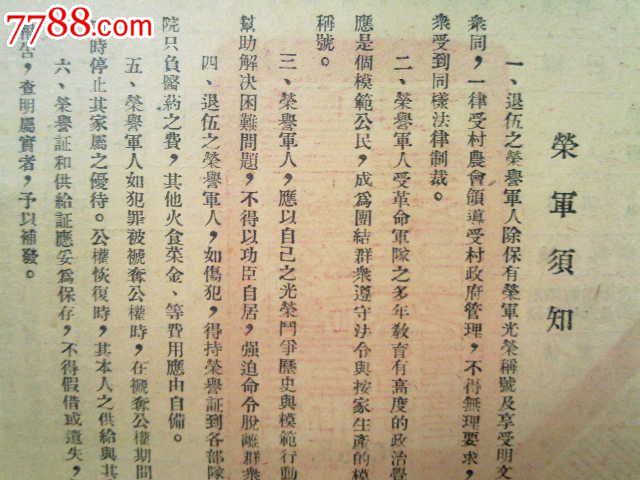 7788.com
榮軍須知
一、退伍之榮譽軍人除保有榮軍光榮稱號及享受明文
衆同，一律受村農會領導受村政府管理，不得無理要求，
衆受到同樣法律制裁。
二、榮譽軍人受革命軍隊之多年敎育有高度的政治覺
應是個模範公民，成爲團結群衆遵守法令與按家生產的模
稱號。
三、榮譽軍人，應以自己之光榮鬥爭歷史與模範行動
幫助解决困難問題，不得以功臣自居，强迫命令脫離群衆
四、退伍之榮譽軍人，如傷犯，得持榮譽証到各部隊
院只負醫药之費，其他火食菜金、等費用應由自備。
五、榮譽軍人如犯罪被褫奪公權時，在褫奪公權期間
時停止其家屬之優待。公權恢復時，其本人之供給與其
六、榮譽証和供給証應妥爲保存，不得假借或遺失，
查明屬實者，予以補發。